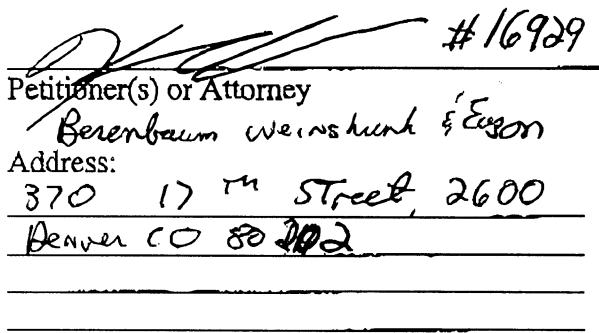 #16929
Petitioner(s) or Attorney
Berenbaum Weinshienk & Eason
Address:
370 17TH Street, 2600
Denver CO 80202